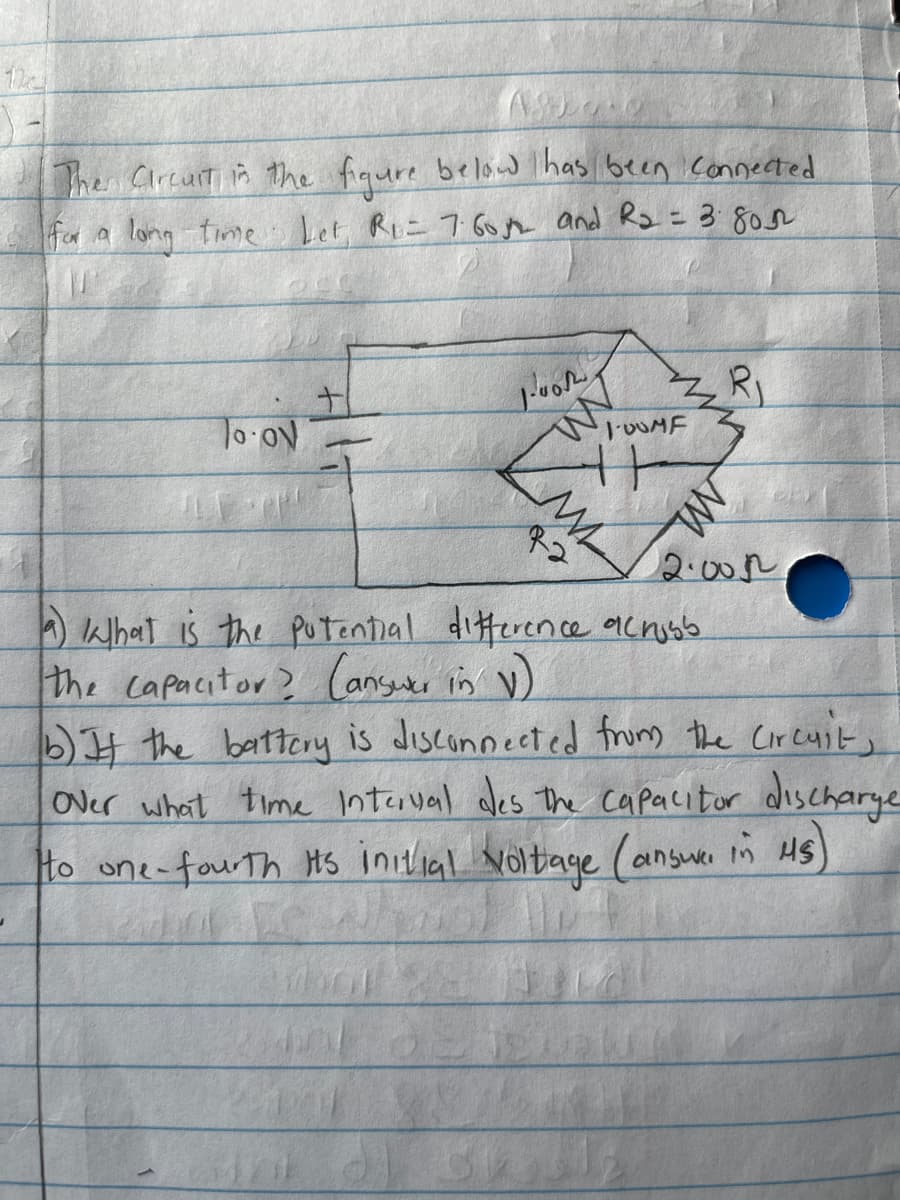 The Circuit in the figure below has been connected
for a long time Let, R1 = 7.60Ω and R2 = 3.80Ω
1.00Ω
R1
+
10.0V
1.00MF
-
R2
2.00Ω
a) What is the potential difference across
the capacitor? (answer in V)
b) If the battery is disconnected from the circuit,
over what time interval des the capacitor discharge
to one-fourth its initial voltage (answer in μs)